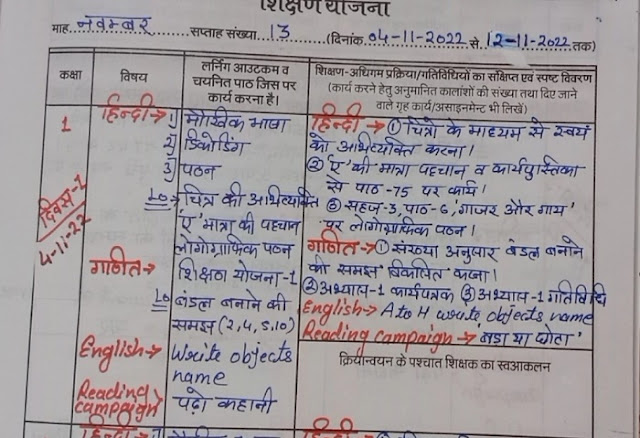 शिक्षण योजना
माह नवम्बर सप्ताह संख्या 13 (दिनांक 04-11-2022 से 12-11-2022 तक)
कक्षा
विषय
लर्निंग आउटकम व
चयनित पाठ जिस पर
कार्य करना है।
शिक्षण-अधिगम प्रक्रिया/गतिविधियों का संक्षिप्त एवं स्पष्ट विवरण
(कार्य करने हेतु अनुमानित कालांशों की संख्या तथा दिए जाने
वाले गृह कार्य/असाइनमेंट भी लिखें)
1
दिवस-1
4-11-22
हिन्दी→ 1) मौखिक भाषा
2) डिकोडिंग
3) पठन
LO→ चित्र की अभिव्यक्ति
'ए' मात्रा की पहचान
लोगोग्राफिक पठन
गणित→ शिक्षण योजना-1
LO बंडल बनाने की
समझ (2,4,5,10)
English→ Write objects
name
Reading campaign→ पढ़ो कहानी
हिन्दी→ ① चित्रो के माध्यम से स्वयं
को अभिव्यक्ति करना।
② 'ए' की मात्रा पहचान व कार्यपुस्तिका
से पाठ-75 पर कार्य।
③ सहज-3, पाठ-6, 'गाजर और गाय'
पर लोगोग्राफिक पठन।
गणित→ ① संख्या अनुसार बंडल बनाने
की समझ विकसित करना।
② अभ्यास-1 कार्यपत्रक ③ अभ्यास-1 गतिविधि
English→ A to H write objects name
Reading campaign→ 'बड़ा या छोटा'
क्रियान्वयन के पश्चात शिक्षक का स्वआकलन